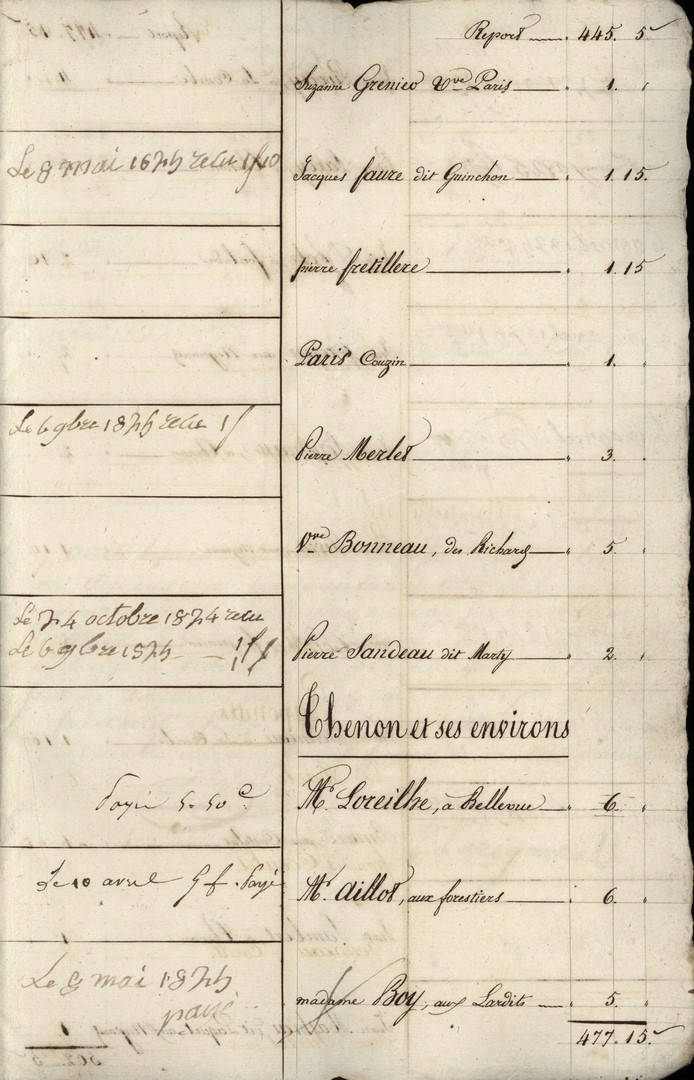 Report 445. 5
Suzanne Grenier Vve Paris 1.
Le 8 mai 1875 reçu 1f10
Jacques faure dit Guinchon 1. 15.
pierre fretillere 1. 15
Paris Couzin 1.
Le 6 9bre 1875 reçu 1f
Pierre Merlet 3.
Vve Bonneau, des Richards 5.
Le 24 octobre 1874 reçu
Le 6 9bre 1875
Pierre Sandeau dit Marty 2.
Thenon et ses environs
Payé 5. 50c.
Mr. Loreilhe, a Bellevue 6
Le 10 avril 5f. Payé
Mr. aillot, aux forestiers 6.
Le 8 mai 1875
payé
madame Boy, aux Lardits 5.
477. 15